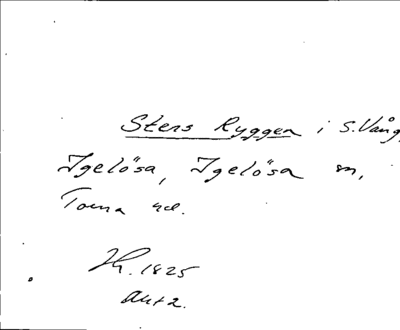 Stens Ryggen i S. Vång,
Igelösa, Igelösa sn,
Torna hd.
Lh. 1825
Akt 2.